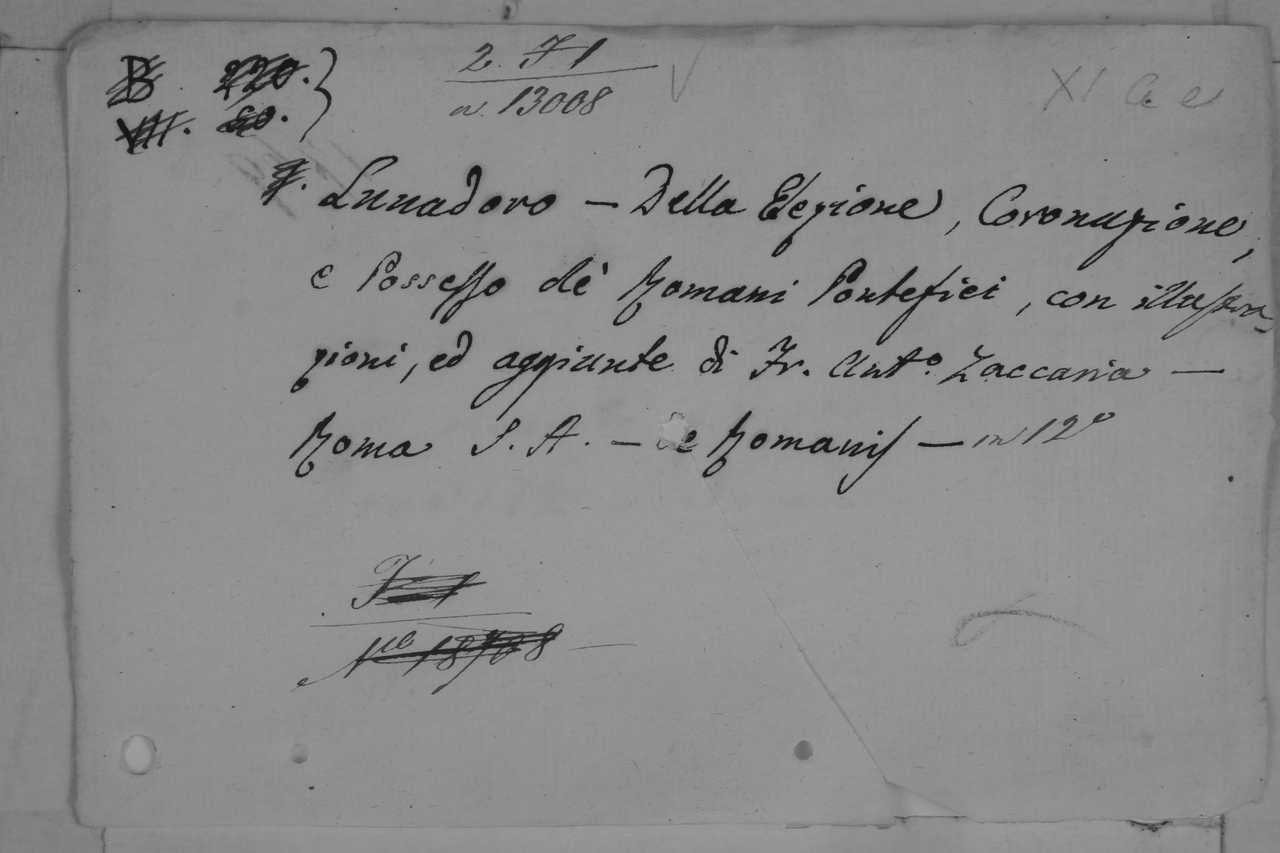 2. F 1
n. 13008
XI C. e
Lunadoro – Della Elezione, Coronazione,
e Possesso de' Romani Pontefici, con illustra-
zioni, ed aggiunte di Fr. Ant.o Zaccaria —
Roma S. A. — de Romanis — in 12o